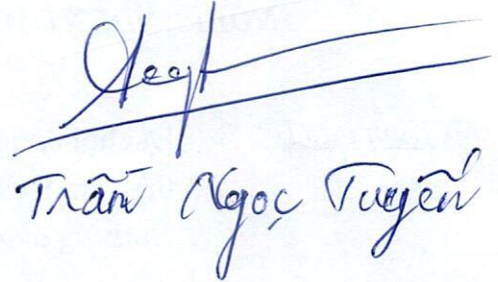 Trần Ngọc Tuyến